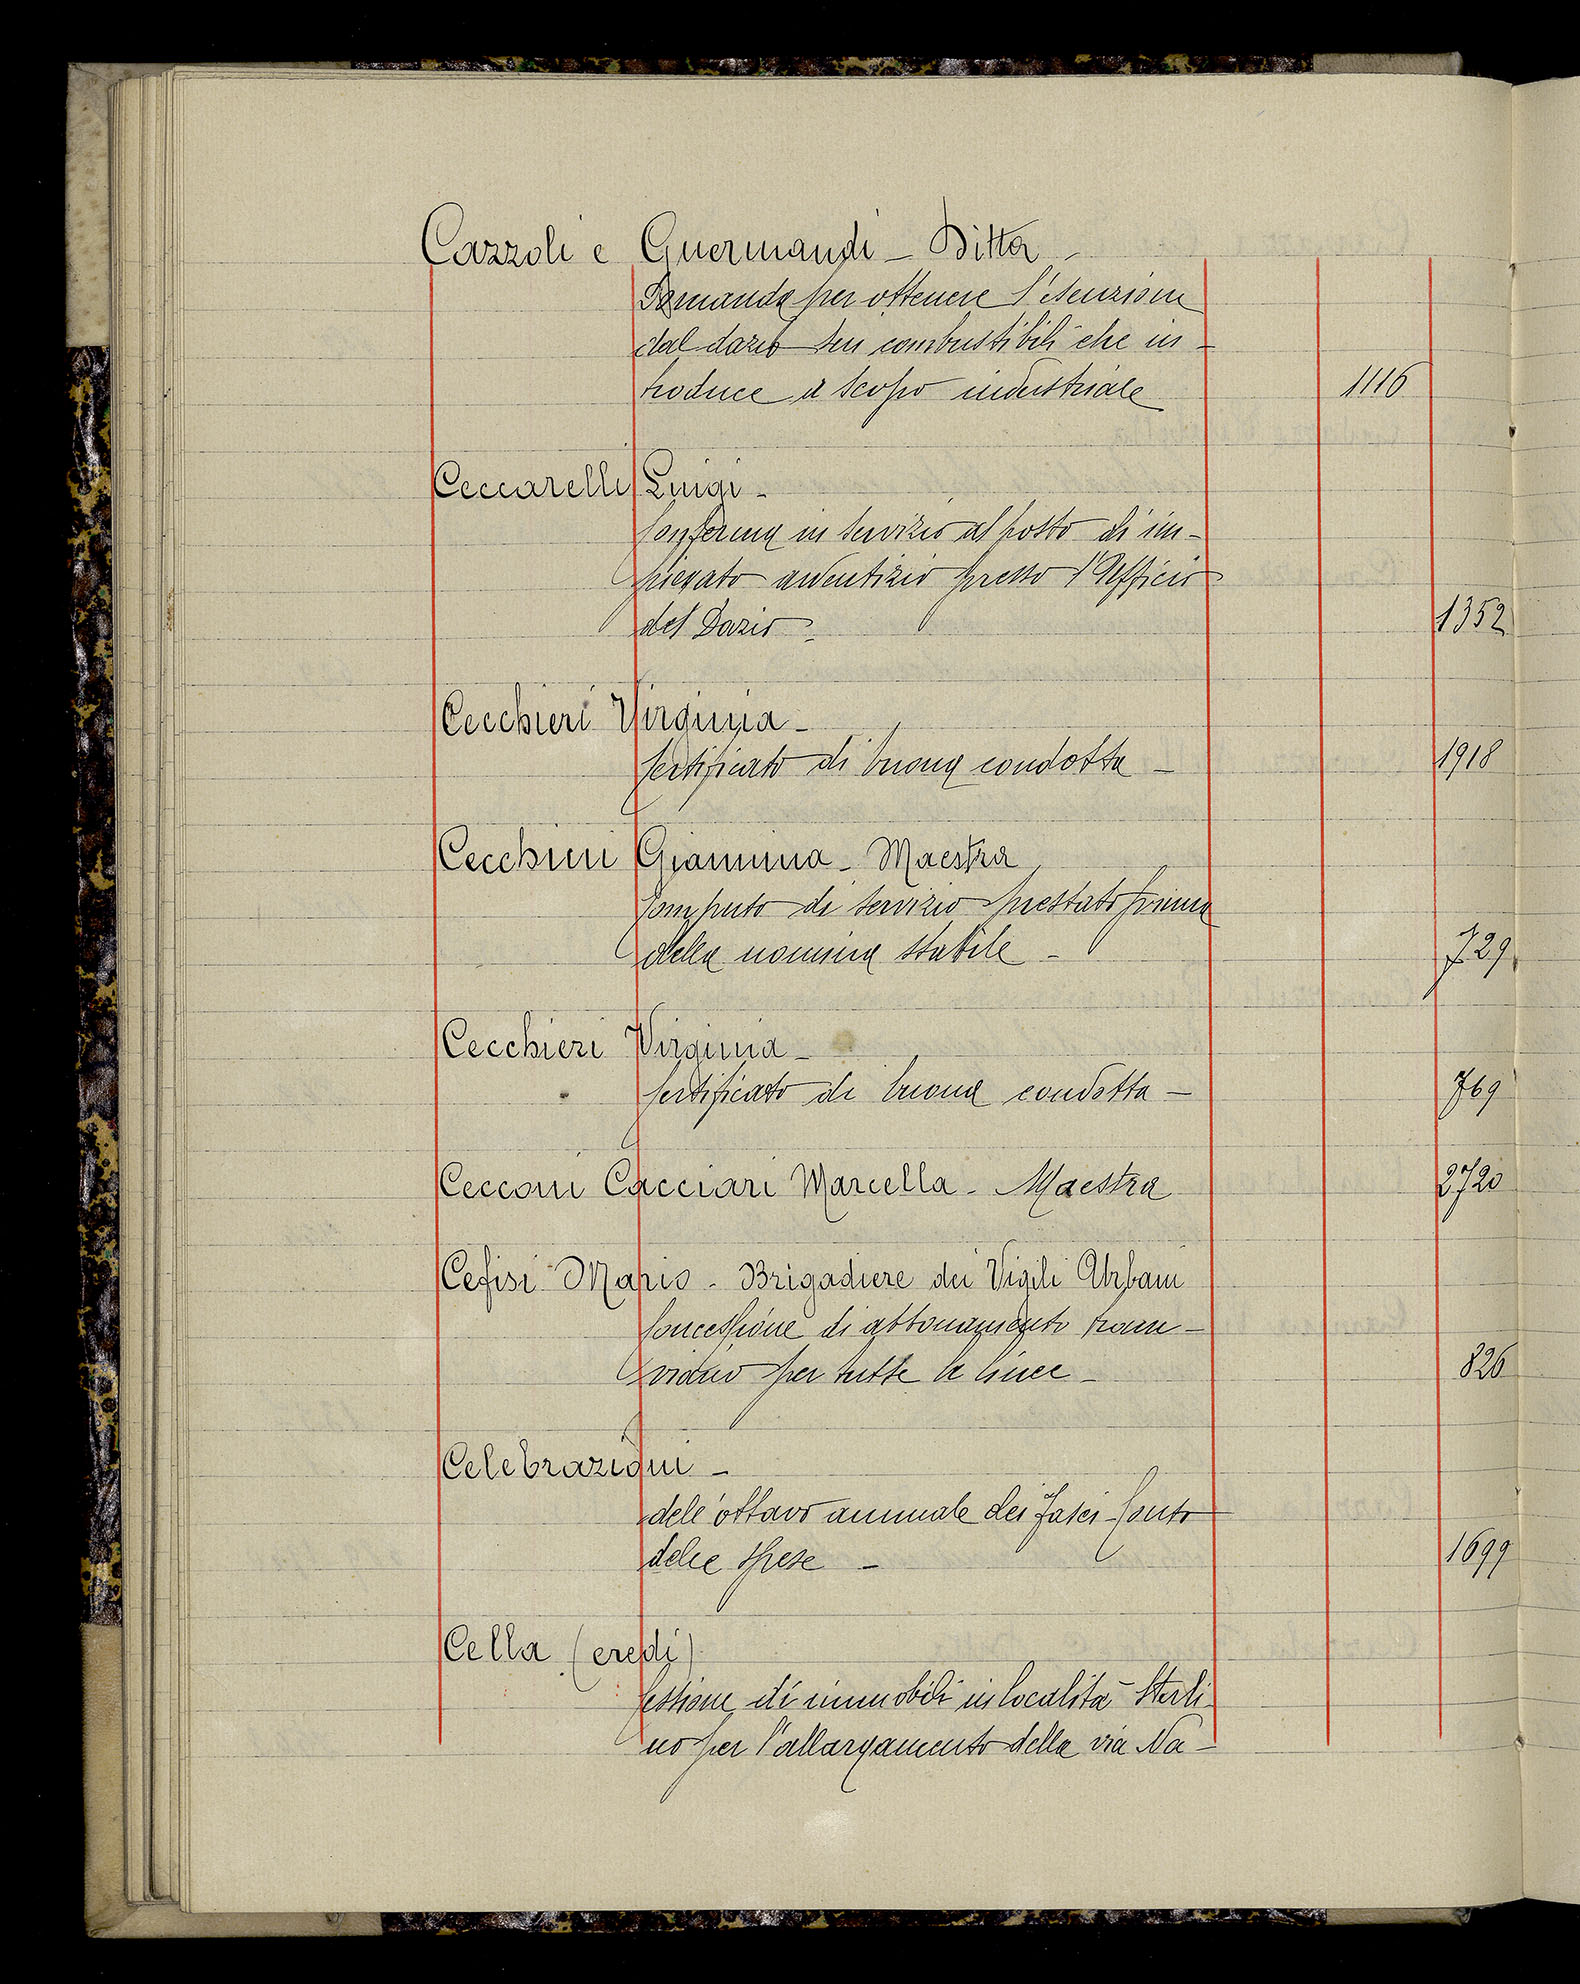 Cazzoli e Guermandi - Ditta -
Domanda per ottenere l'esenzione
dal dazio sui combustibili che in-
troduce a scopo industriale 1116
Ceccarelli Luigi -
Conferma in servizio al posto di im-
piegato avventizio presso l'Ufficio
del Dazio - 1352
Cecchieri Virginia -
Certificato di buona condotta - 1918
Cecchini Giannina - Maestra
Computo di servizio prestato prima
della nomina stabile - 729
Cecchieri Virginia -
Certificato di buona condotta - 769
Cecconi Cacciari Marcella - Maestra 2720
Cefisi Mario - Brigadiere dei Vigili Urbani
Concessione di abbonamento tram-
viario per tutte le linee - 826
Celebrazioni -
dell'ottavo annuale dei Fasci - Conto
delle spese - 1699
Cella (eredi)
Cessione di immobili in località Sterli-
no per l'allargamento della via Na-